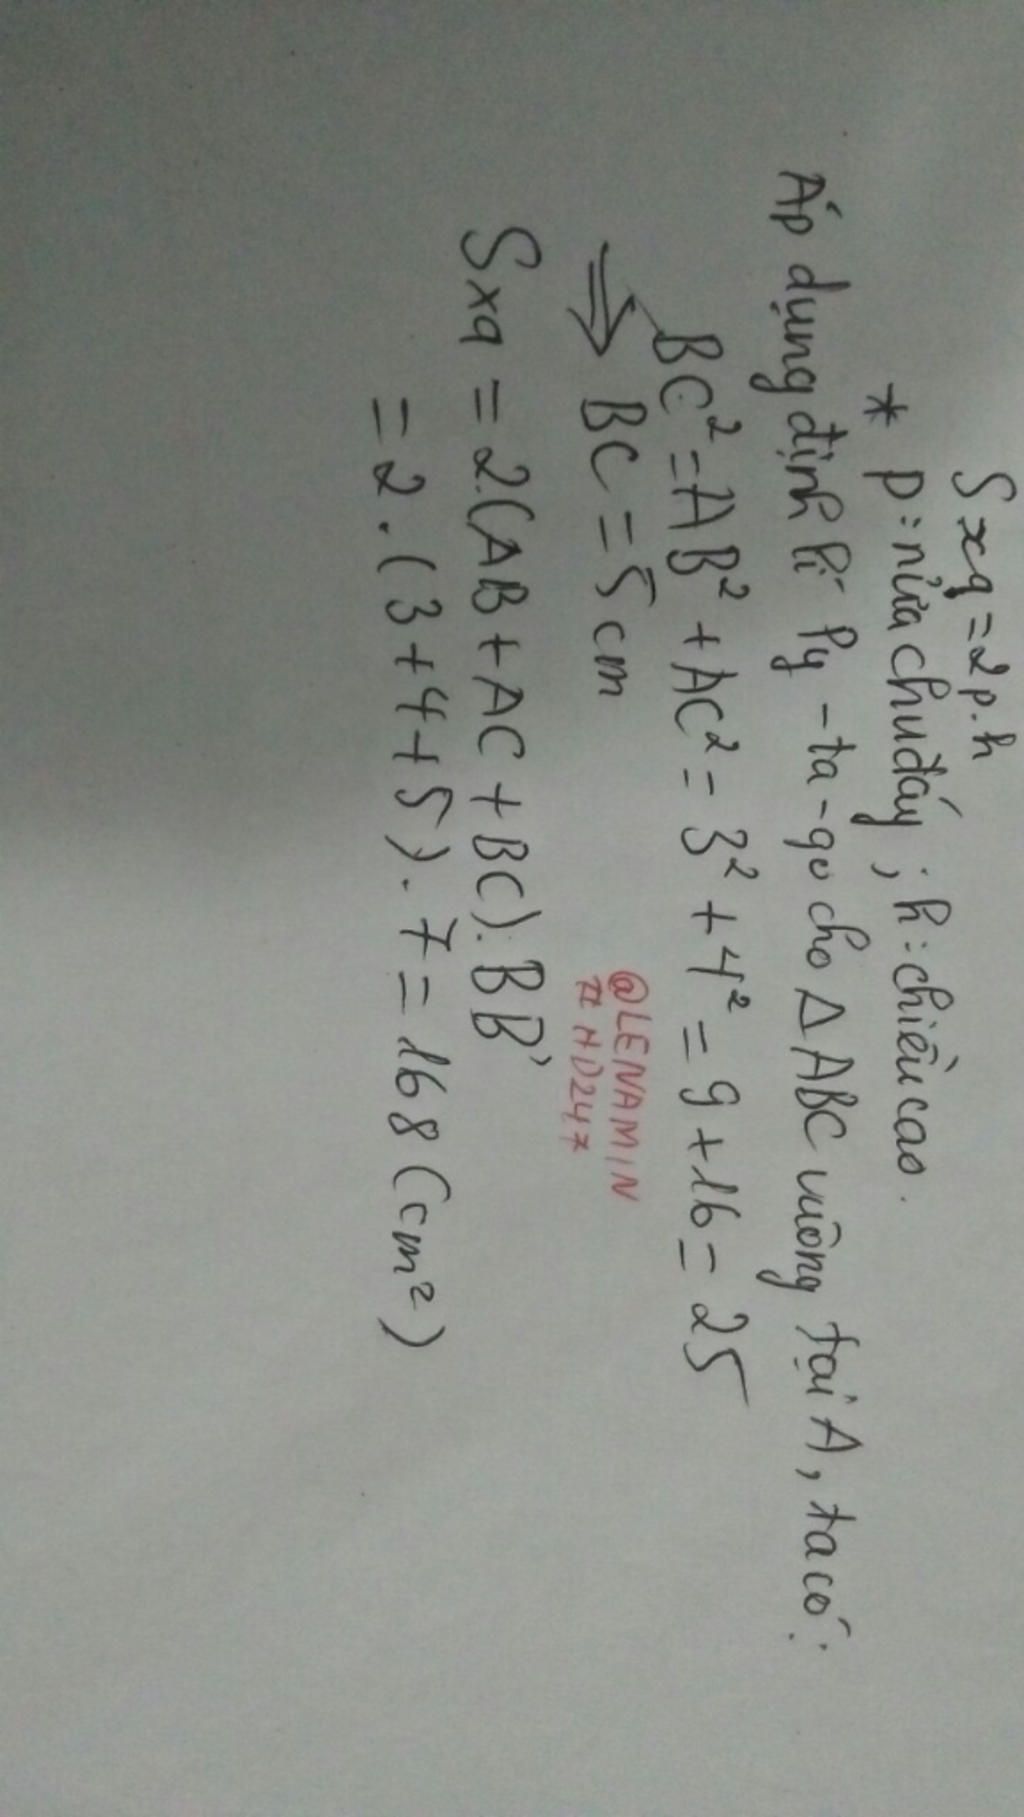 Sxq = 2p.h
* p: nửa chu đáy; h: chiều cao.
Áp dụng định lí Py-ta-go cho Δ ABC vuông tại A, ta có:
BC² = AB² + AC² = 3² + 4² = 9 + 16 = 25
⇒ BC = 5 cm
@LENAMIN
# HD247
Sxq = 2(AB + AC + BC). BB'
= 2 . (3 + 4 + 5) . 7 = 168 (cm²)